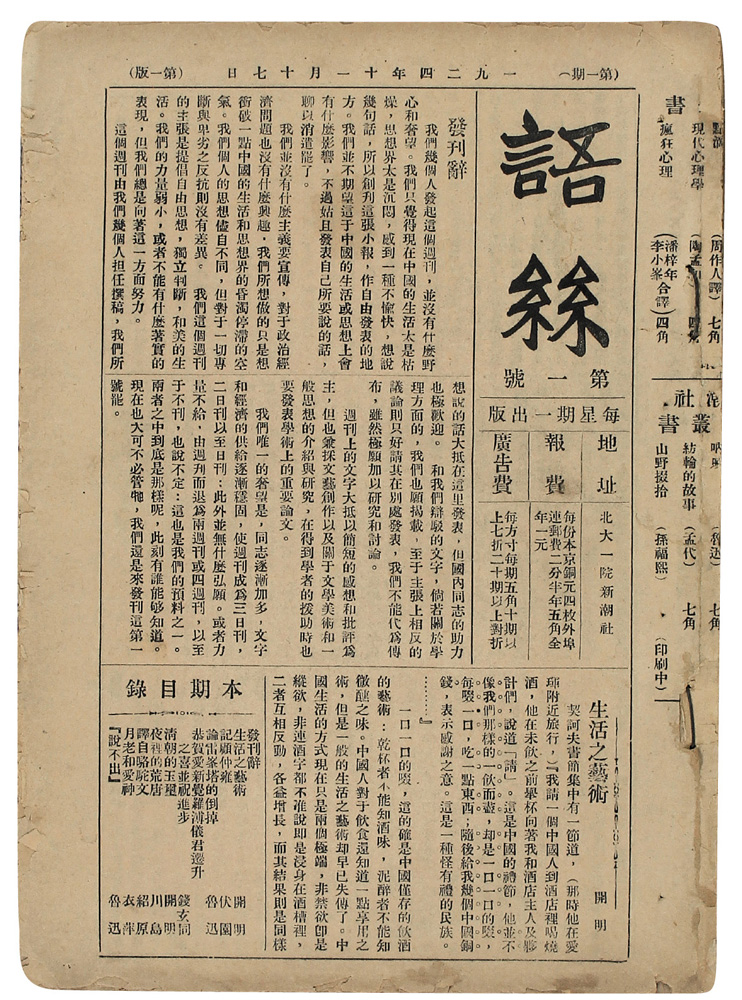 書
現代心理學
瘋狂心理
(周作人譯) 七角
(潘梓年
李小峯合譯) 四角
社
叢書
(魯迅) 七角
紡輪的故事 (孟代) 七角
山野掇拾 (孫福熙) (印刷中)
(第一期)
一九二四年十一月十七日
(第一版)
語絲
第一號
每星期一出版
地址
北大一院新潮社
報費
每份本京銅元四枚外埠
連郵費二分半年五角全
年一元
廣告費
每方寸每期五角十期以
上七折二十期以上對折
發刊辭
我們幾個人發起這個週刊，並沒有什麼野
心和奢望。我們只覺得現在中國的生活太是枯
燥，思想界太是沉悶，感到一種不愉快，想說
幾句話，所以創刊這張小報，作自由發表的地
方。我們並不期望這于中國的生活或思想上會
有什麼影響，不過姑且發表自己所要說的話，
聊以消遣罷了。
我們並沒有什麼主義要宣傳，對于政治經
濟問題也沒有什麼興趣，我們所想做的只是想
衝破一點中國的生活和思想界的昏濁停滯的空
氣。我們個人的思想儘自不同，但對于一切專
斷與卑劣之反抗則沒有差異。我們這個週刊
的主張是提倡自由思想，獨立判斷，和美的生
活。我們的力量弱小，或者不能有什麼著實的
表現，但我們總是向著這一方面努力。
這個週刊由我們幾個人担任撰稿，我們所
想說的話大抵在這里發表，但國內同志的助力
也極歡迎。和我們辯駁的文字，倘若關於學
理方面的，我們也願揭載，至于主張上相反的
議論則只好請其在別處發表，我們不能代爲傳
布，雖然極願加以研究和討論。
週刊上的文字大抵以簡短的感想和批評爲
主，但也兼採文藝創作以及關于文學美術和一
般思想的介紹與研究，在得到學者的援助時也
要發表學術上的重要論文。
我們唯一的奢望是，同志逐漸加多，文字
和經濟的供給逐漸穩固，使週刊成爲三日刊，
二日刊以至日刊：此外並無什麼弘願。或者力
量不給，由週刋而退爲兩週刊或四週刊，以至
于不刊，也說不定：這也是我們的預料之一。
兩者之中到底是那樣呢，此刻有誰能够知道。
現在也大可不必管牠，我們還是來發刊這第一
號罷。
生活之藝術
開明
契訶夫書簡集中有一節道，(那時他在愛
琿附近旅行，)『我請一個中國人到酒店裡喝燒
酒，他在未飲之前舉杯向著我和酒店主人及夥
計們，說道「請」。這是中國的禮節，他並不
像我們那樣的一飲而盡，却是一口一口的啜，
每啜一口，吃一點東西；隨後給我幾個中國銅
錢，表示感謝之意。這是一種怪有禮的民族。
……』
一口一口的啜，這的確是中國僅存的飲酒
的藝術：乾杯者不能知酒味，泥醉者不能知
微醺之味。中國人對于飲食還知道一點享用之
術，但是一般的生活之藝術却早已失傳了。中
國生活的方式現在只是兩個極端，非禁欲卽是
縱欲，非連酒字都不准說卽是浸身在酒槽裡，
二者互相反動，各益增長，而其結果則是同樣
本期目錄
發刊辭
生活之藝術 開明
記顧仲雍 伏園
論雷峯塔的倒掉 魯迅
恭賀愛新覺羅溥儀君遷升
之喜並祝進步 錢玄同
清朝的玉璽 開明
夜裡的荒唐 川島
譯自駱駝文 紹原
月老和愛神 衣萍
『說不出』 魯迅